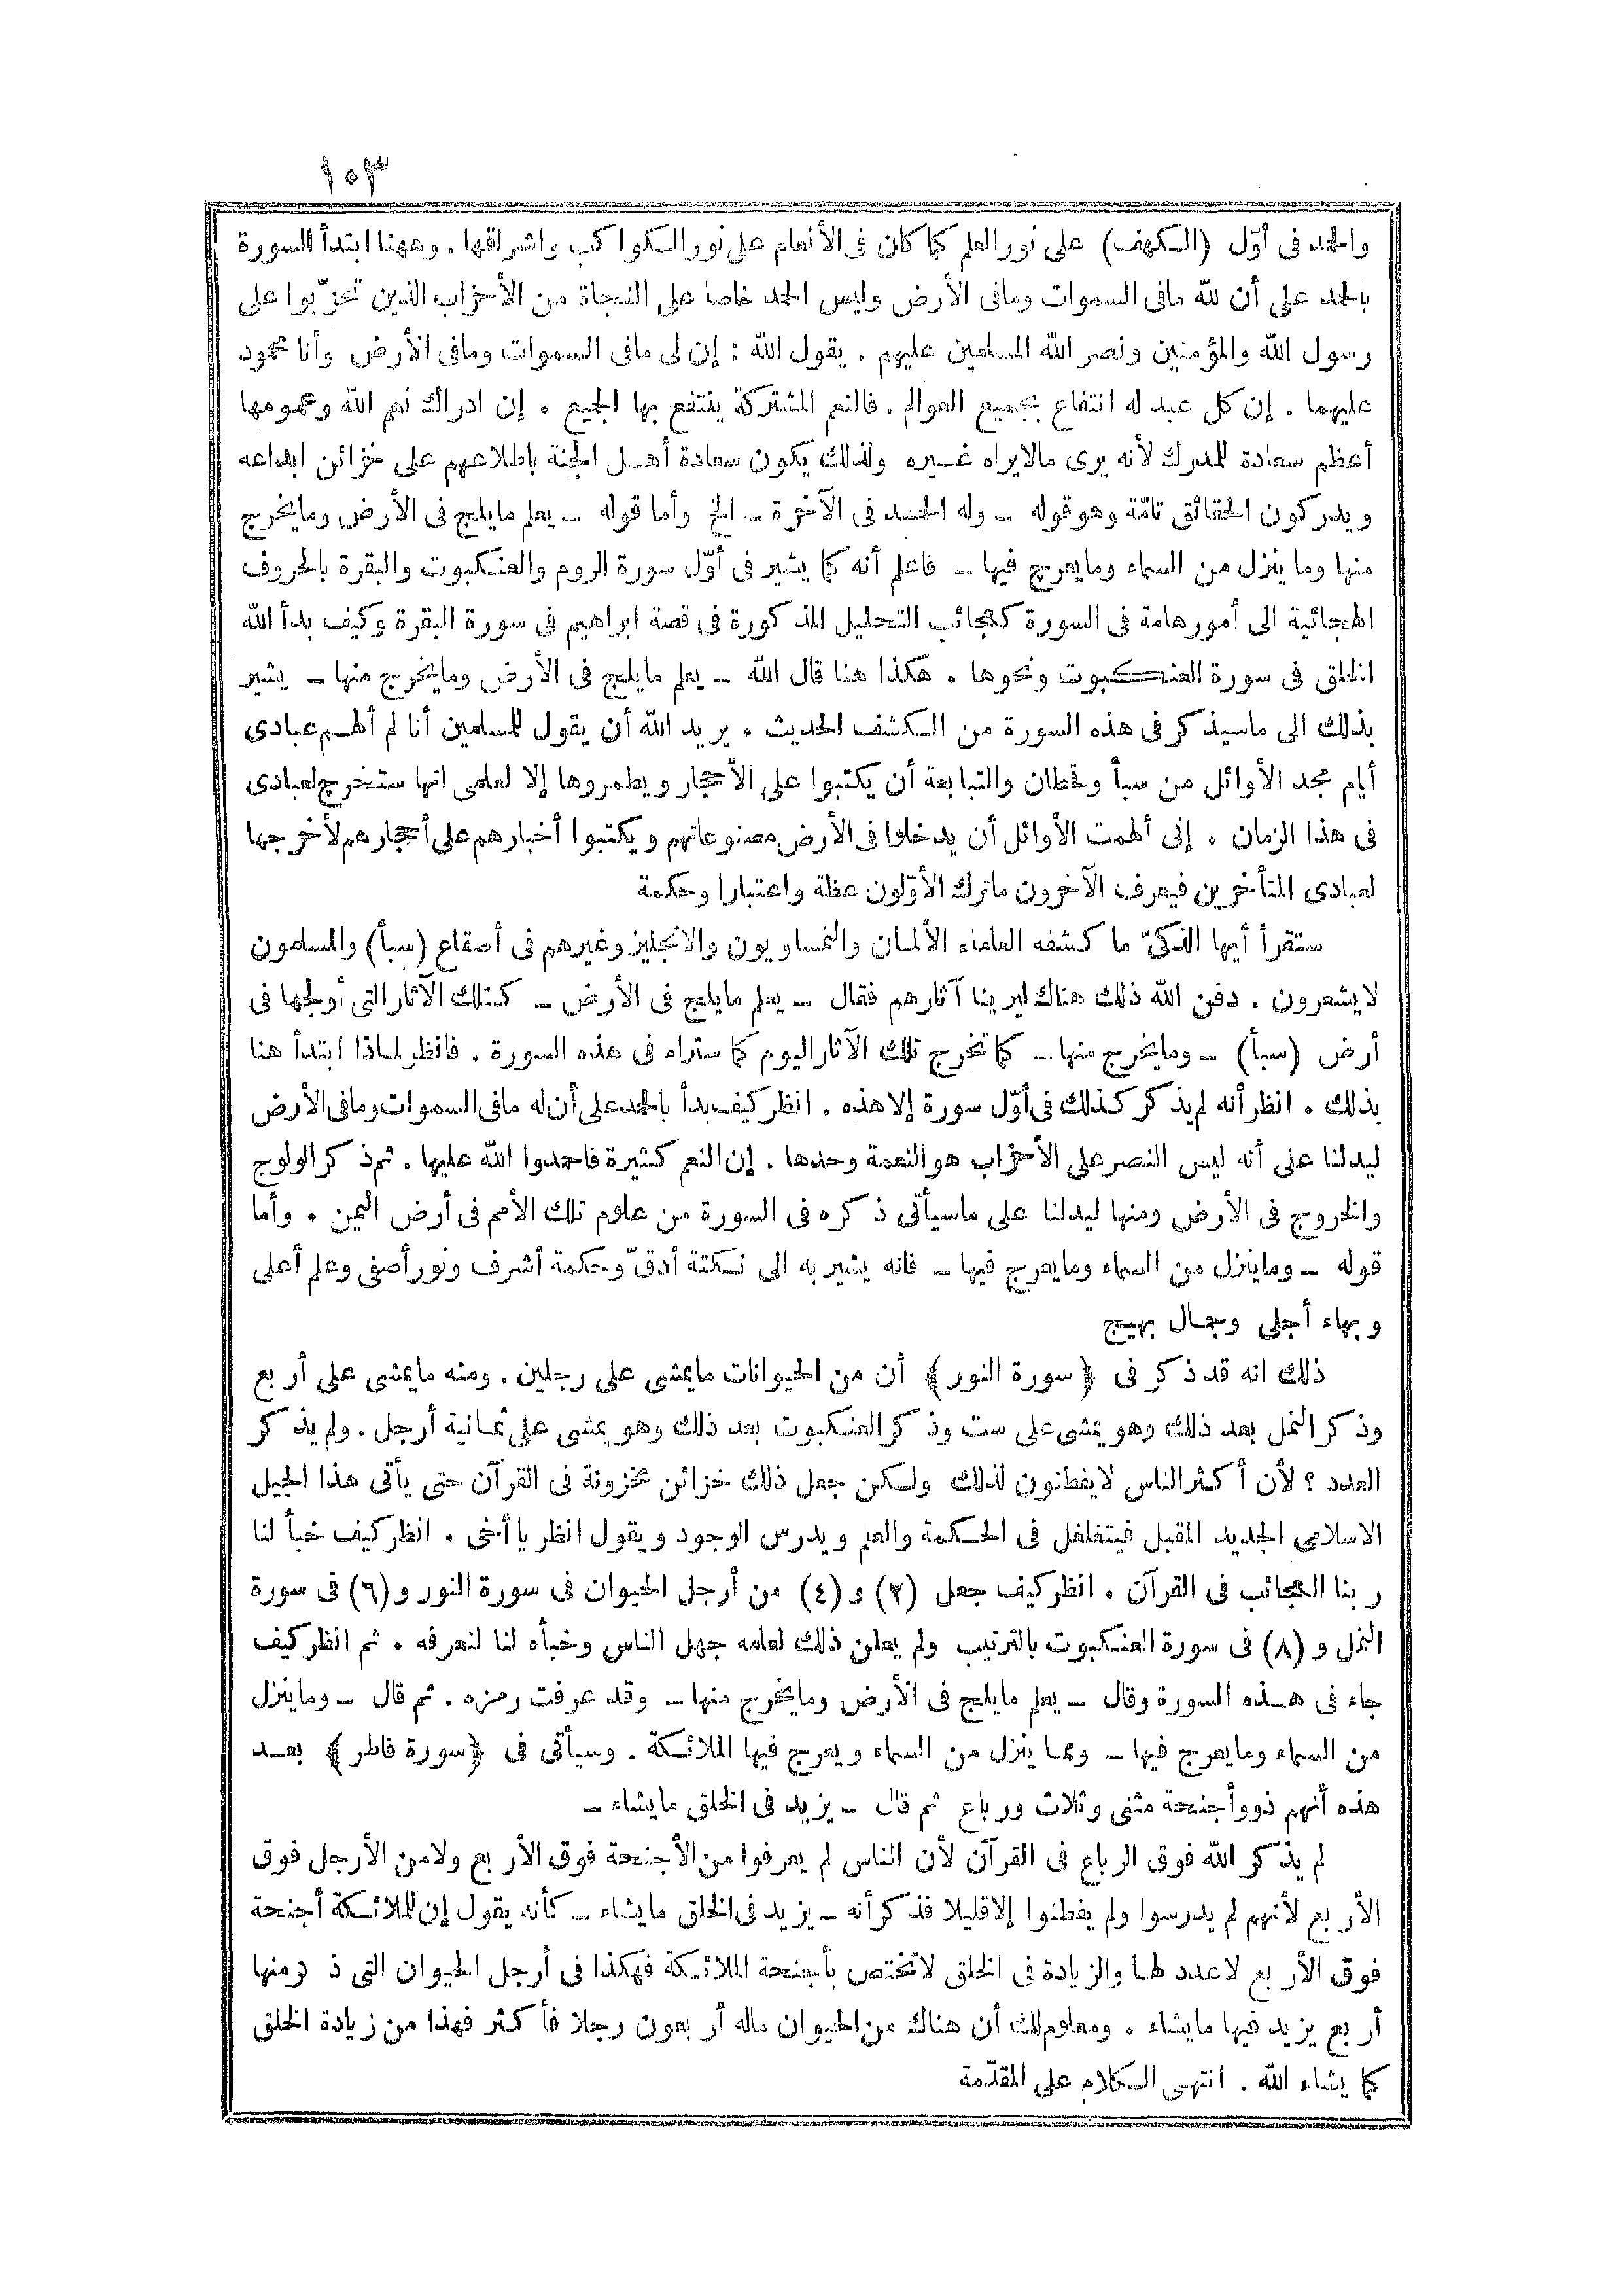 ١٠٣
والحمد فى أوّل (الكهف) على نور العلم كما كان فى الأنعام على نور الكواكب واشراقها . وههنا ابتدأ السورة
بالحمد على أن لله مافى السموات ومافى الأرض وليس الحمد خاصا على النجاة من الأحزاب الذين تحزّبوا على
رسول الله والمؤمنين ونصر الله المسلمين عليهم . يقول الله : إن لى مافى السموات ومافى الأرض وأنا محمود
عليهما . إن كل عبد له انتفاع بجميع العوالم . فالنعم المشتركة ينتفع بها الجميع . إن ادراك نعم الله وعمومها
أعظم سعادة للمدرك لأنه يرى مالايراه غيره ولذلك يكون سعادة أهل الجنة باطلاعهم على خزائن ابداعه
ويدركون الحقائق تامّة وهو قوله ــ وله الحمد فى الآخرة ــ الخ وأما قوله ــ يعلم مايلج فى الأرض ومايخرج
منها وما ينزل من السماء ومايعرج فيها ــ فاعلم أنه كما يشير فى أوّل سورة الروم والعنكبوت والبقرة بالحروف
الهجائية الى أمور هامة فى السورة كعجائب التحليل المذكورة فى قصة ابراهيم فى سورة البقرة وكيف بدأ الله
الخلق فى سورة العنكبوت ونحوها . هكذا هنا قال الله ــ يعلم مايلج فى الأرض ومايخرج منها ــ يشير
بذلك الى ماسيذكر فى هذه السورة من الكشف الحديث . يريد الله أن يقول للمسلمين أنا لم ألهم عبادى
أيام مجد الأوائل من سبأ وقحطان والتبابعة أن يكتبوا على الأحجار ويطمروها إلا لعلمى انها ستخرج لعبادى
فى هذا الزمان . إنى ألهمت الأوائل أن يدخلوا فى الأرض مصنوعاتهم ويكتبوا أخبارهم على أحجارهم لأخرجها
لعبادى المتأخرين فيعرف الآخرون ماترك الأوّلون عظة واعتبارا وحكمة
ستقرأ أيها الذكىّ ما كشفه العلماء الألمان والنمساويون والانجليز وغيرهم فى أصقاع (سبأ) والمسلمون
لايشعرون . دفن الله ذلك هناك ليرينا آثارهم فقال ــ يعلم مايلج فى الأرض ــ كتلك الآثار التى أولجها فى
أرض (سبأ) ــ ومايخرج منها ــ كما تخرج تلك الآثار اليوم كما ستراه فى هذه السورة . فانظر لماذا ابتدأ هنا
بذلك . انظر أنه لم يذكر كذلك فى أوّل سورة إلا هذه . انظر كيف بدأ بالحمد على أن له مافى السموات ومافى الأرض
ليدلنا على أنه ليس النصر على الأحزاب هو النعمة وحدها . إن النعم كثيرة فاحمدوا الله عليها . ثم ذكر الولوج
والخروج فى الأرض ومنها ليدلنا على ماسيأتى ذكره فى السورة من علوم تلك الأمم فى أرض اليمن . وأما
قوله ــ وماينزل من السماء ومايعرج فيها ــ فانه يشير به الى نكتة أدقّ وحكمة أشرف ونور أصفى وعلم أعلى
وبهاء أجلى وجمال بهيج
ذلك انه قد ذكر فى ﴿سورة النور﴾ أن من الحيوانات مايمشى على رجلين . ومنه مايمشى على أربع
وذكر النمل بعد ذلك وهو يمشى على ست وذكر العنكبوت بعد ذلك وهو يمشى على ثمانية أرجل . ولم يذكر
العدد ؟ لأن أكثر الناس لايفطنون لذلك ولكن جعل ذلك خزائن مخزونة فى القرآن حتى يأتى هذا الجيل
الاسلامى الجديد المقبل فيتغلغل فى الحكمة والعلم ويدرس الوجود ويقول انظر يا أخى . انظر كيف خبأ لنا
ربنا العجائب فى القرآن . انظر كيف جعل (٢) و (٤) من أرجل الحيوان فى سورة النور و (٦) فى سورة
النمل و (٨) فى سورة العنكبوت بالترتيب ولم يعلن ذلك لعلمه جهل الناس وخبأه لنا لنعرفه . ثم انظر كيف
جاء فى هذه السورة وقال ــ يعلم مايلج فى الأرض ومايخرج منها ــ وقد عرفت رمزه . ثم قال ــ وماينزل
من السماء ومايعرج فيها ــ ومما ينزل من السماء ويعرج فيها الملائكة . وسيأتى فى ﴿سورة فاطر﴾ بعد
هذه أنهم ذووأجنحة مثنى وثلاث ورباع ثم قال ــ يزيد فى الخلق مايشاء ــ
لم يذكر الله فوق الرباع فى القرآن لأن الناس لم يعرفوا من الأجنحة فوق الأربع ولامن الأرجل فوق
الأربع لأنهم لم يدرسوا ولم يفطنوا إلاقليلا فذكر أنه ــ يزيد فى الخلق مايشاء ــ كأنه يقول إن للملائكة أجنحة
فوق الأربع لاعدد لها والزيادة فى الخلق لاتختص بأجنحة الملائكة فهكذا فى أرجل الحيوان التى منها
أربع يزيد فيها مايشاء . ومعلوم لك أن هناك من الحيوان ماله أربعون رجلا فأكثر فهذا من زيادة الخلق
كما يشاء الله . انتهى الكلام على المقدّمة